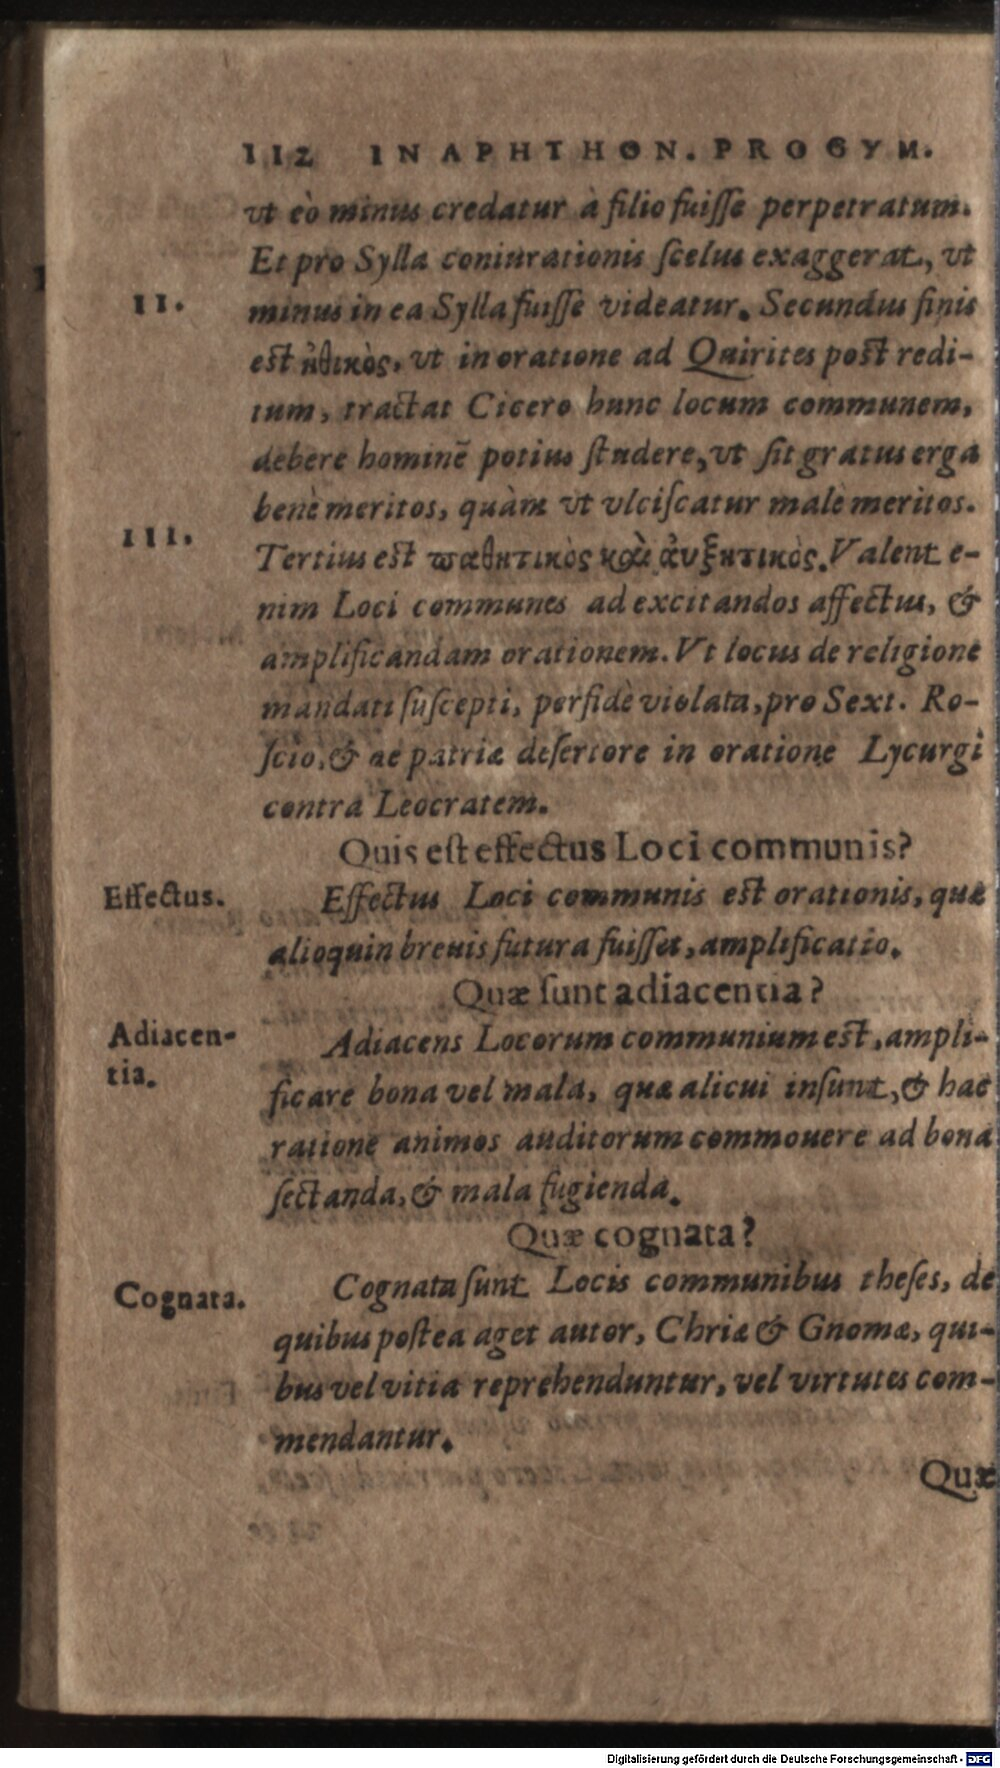 112 IN APHTHON. PROGYM.
vt eò minus credatur à filio fuiſſe perpetratum.
Et pro Sylla coniurationis ſcelus exaggerat, vt
II.
minus in ea Sylla fuiſſe videatur. Secundus finis
est ἠθικὸς, vt in oratione ad Quirites post redi-
tum, tractat Cicero hunc locum communem,
debere hominē potius ſtudere, vt ſit gratus erga
benè meritos, quàm vt vlciſcatur malè meritos.
III.
Tertius est παθητικὸς καὶ ἀυξητικὸς. Valent e-
nim Loci communes ad excitandos affectus, &
amplificandam orationem. Vt locus de religione
mandati ſuſcepti, perfidè violata, pro Sext. Ro-
ſcio, & de patriæ deſertore in oratione Lycurgi
contra Leocratem.
Quis eſt effectus Loci communis?
Effectus.
Effectus Loci communis est orationis, quæ
alioquin breuis futura fuiſſet, amplificatio.
Quæ ſunt adiacentia?
Adiacen-
tia.
Adiacens Locorum communium est, ampli-
ficare bona vel mala, quæ alicui inſunt, & hac
ratione animos auditorum commouere ad bona
ſectanda, & mala fugienda.
Quæ cognata?
Cognata.
Cognata ſunt Locis communibus theſes, de
quibus poſtea aget autor, Chriæ & Gnomæ, qui-
bus vel vitia reprehenduntur, vel virtutes com-
mendantur.
Quæ
Digitalisierung gefördert durch die Deutsche Forschungsgemeinschaft - DFG